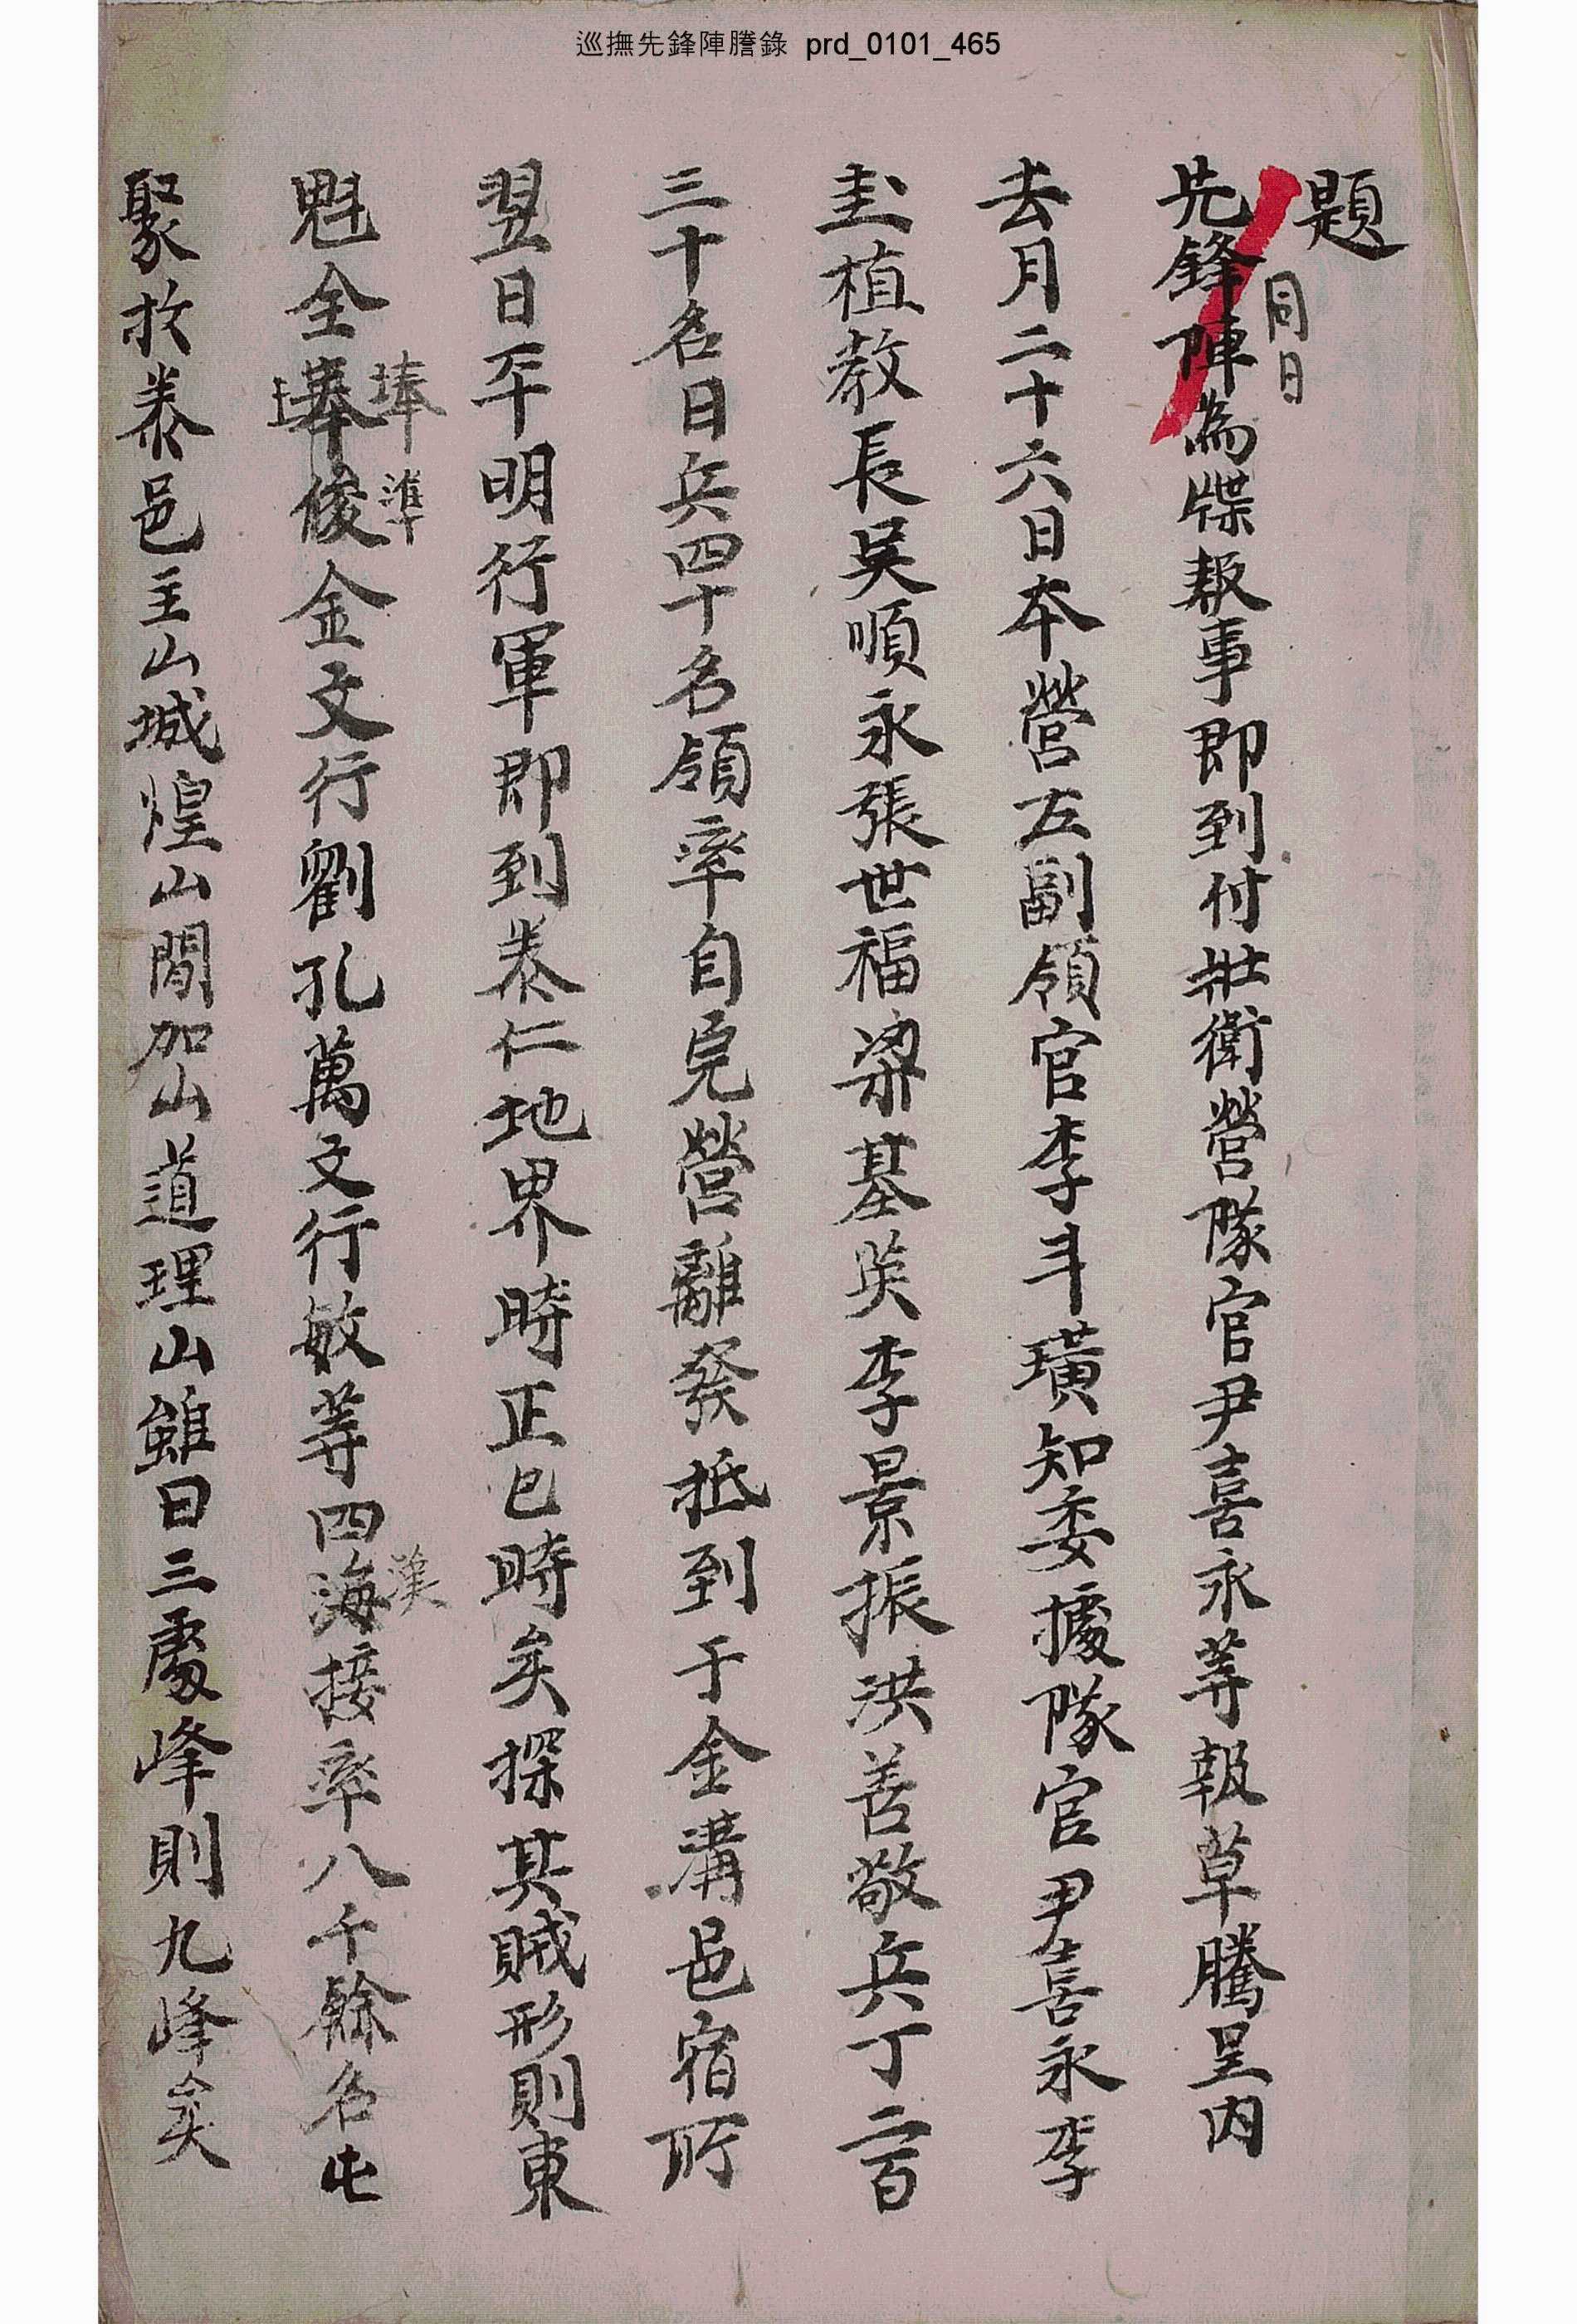 巡撫先鋒陣謄錄 prd_0101_465
題
同日
先鋒陣為牒報事即到付壯衛營隊官尹喜永等報草騰呈內
去月二十六日本營左副領官李斗璜知委據隊官尹喜永李
圭植教長吳順永張世福梁基英李景振洪善敬兵丁二百
三十名日兵四十名領率自完營離發抵到于金溝邑宿所
翌日平明行軍即到泰仁地界時正巳時矣探其賊形則東
魁全琫俊金文行劉孔萬文行敏等四海接率八千餘名屯
琫準
漢
聚於泰邑主山城煌山閒加山道理山雖曰三處峰則九峰矣